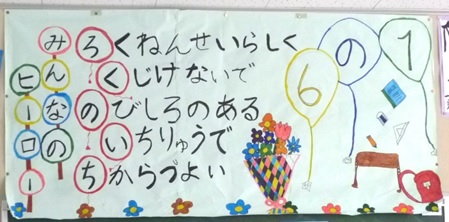 みんなの
ヒーロー
ろくねんせいらしく
くじけないで
のびしろのある
いちりゅうで
ちからづよい
6の1